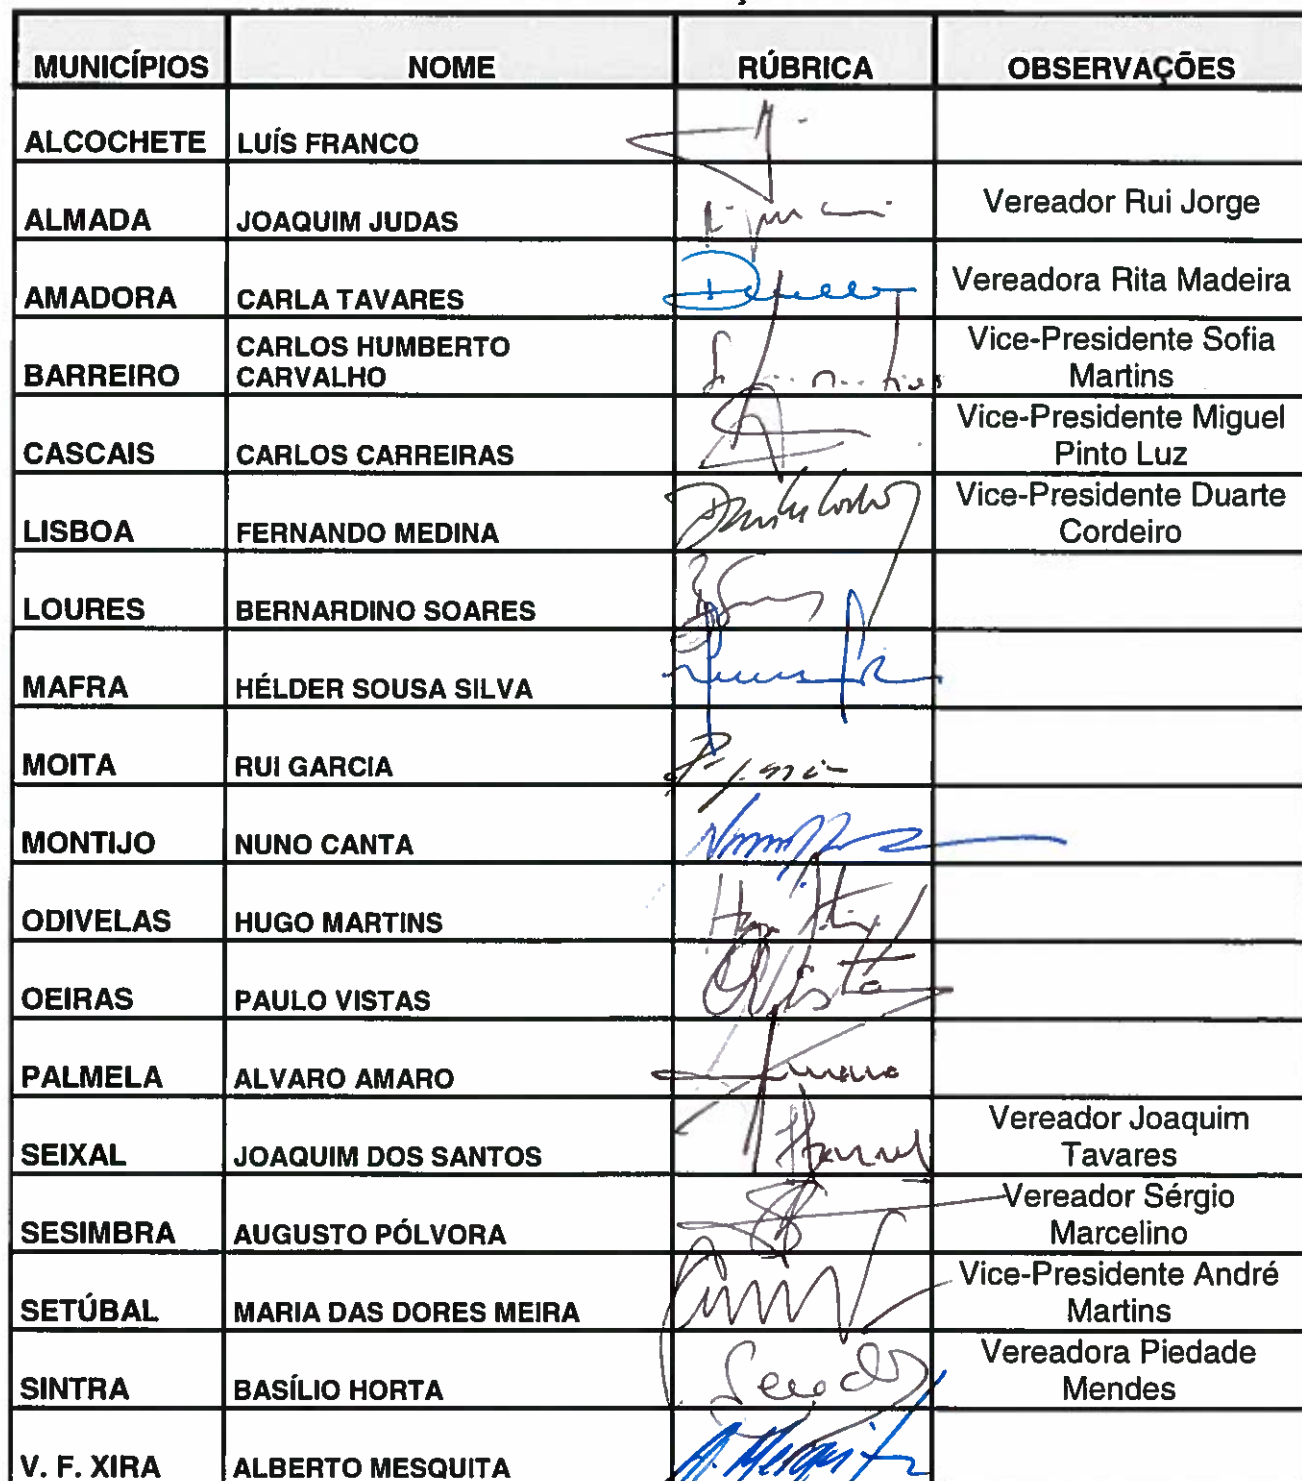 MUNICÍPIOS NOME RÚBRICA OBSERVAÇÕES
ALCOCHETE LUÍS FRANCO
ALMADA JOAQUIM JUDAS Vereador Rui Jorge
AMADORA CARLA TAVARES Vereadora Rita Madeira
BARREIRO CARLOS HUMBERTO
CARVALHO Vice-Presidente Sofia
Martins
CASCAIS CARLOS CARREIRAS Vice-Presidente Miguel
Pinto Luz
LISBOA FERNANDO MEDINA Duarte Cordeiro Vice-Presidente Duarte
Cordeiro
LOURES BERNARDINO SOARES
MAFRA HÉLDER SOUSA SILVA
MOITA RUI GARCIA
MONTIJO NUNO CANTA
ODIVELAS HUGO MARTINS Hugo Martins
OEIRAS PAULO VISTAS Vistas
PALMELA ALVARO AMARO Amaro
SEIXAL JOAQUIM DOS SANTOS Vereador Joaquim
Tavares
SESIMBRA AUGUSTO PÓLVORA Vereador Sérgio
Marcelino
SETÚBAL MARIA DAS DORES MEIRA Vice-Presidente André
Martins
SINTRA BASÍLIO HORTA Vereadora Piedade
Mendes
V. F. XIRA ALBERTO MESQUITA A. Mesquita